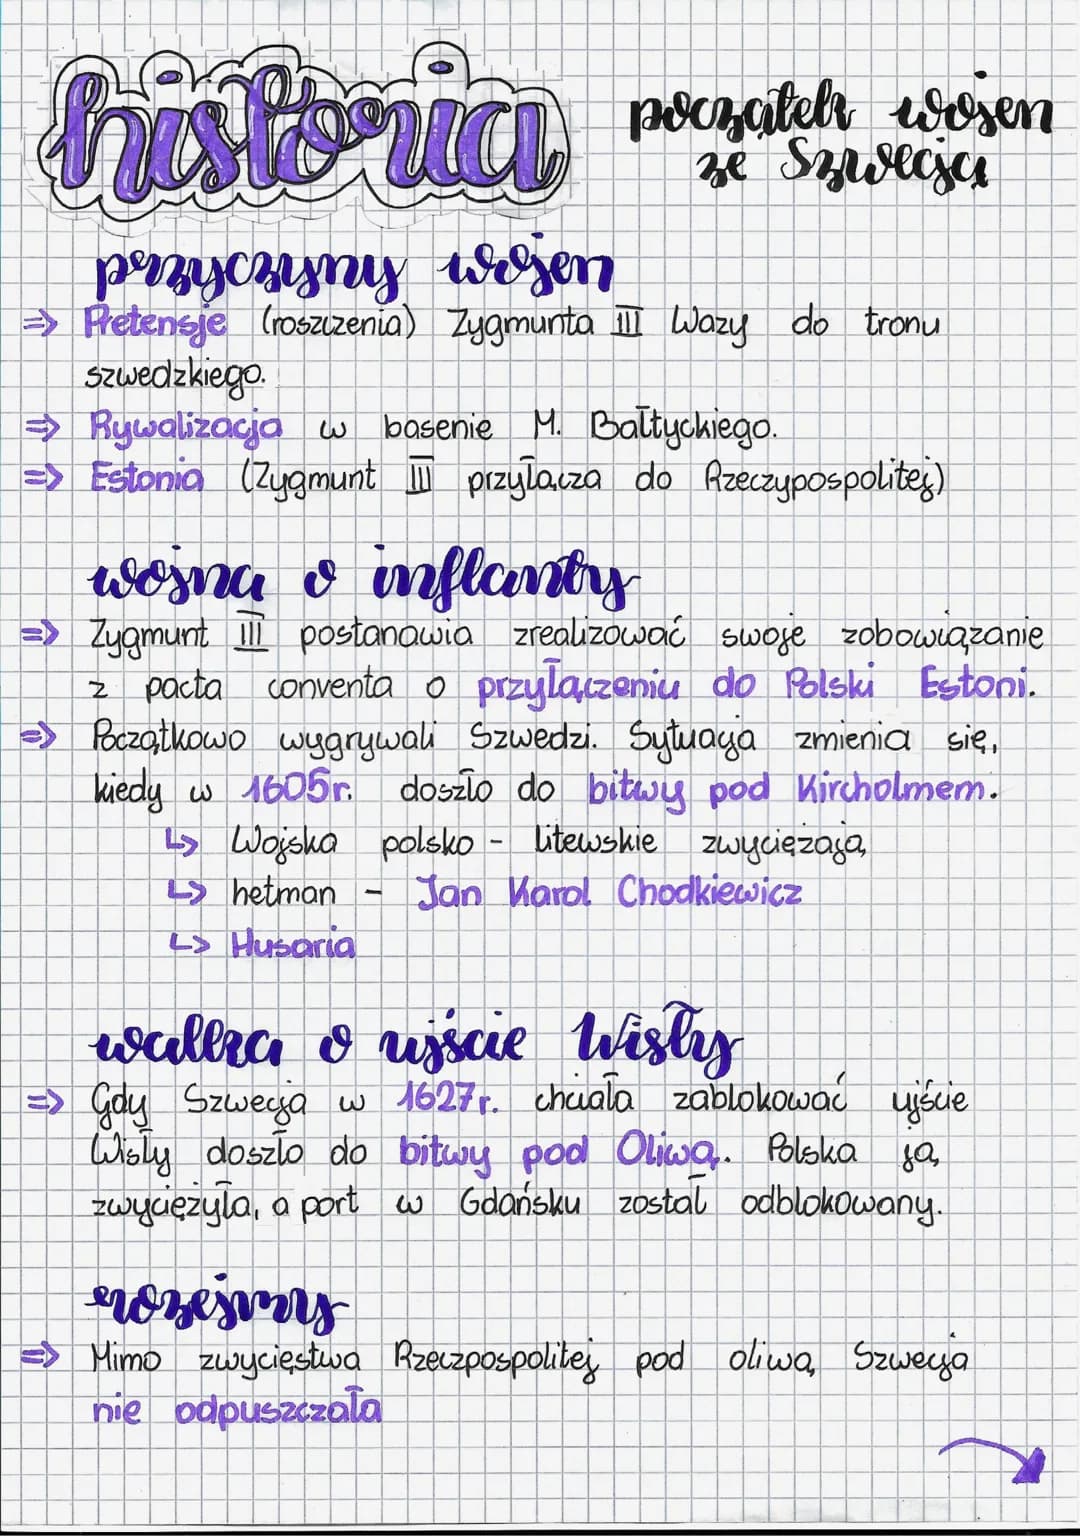 historia
początek wojen
ze Szwecją
przyczyny wojen
=> Pretensje (roszczenia) Zygmunta III Wazy do tronu
szwedzkiego.
=> Rywalizacja w basenie M. Bałtyckiego.
=> Estonia (Zygmunt III przyłącza do Rzeczypospolitej)
wojna o inflanty
=> Zygmunt III postanawia zrealizować swoje zobowiązanie
z pacta conventa o przyłączeniu do Polski Estoni.
=> Początkowo wygrywali Szwedzi. Sytuacja zmienia się,
kiedy w 1605r. doszło do bitwy pod Kircholmem.
↳ Wojska polsko - litewskie zwyciężają
↳ hetman - Jan Karol Chodkiewicz
↳ Husaria
walka o ujście Wisły
=> Gdy Szwecja w 1627r. chciała zablokować ujście
Wisły doszło do bitwy pod Oliwą. Polska ją
zwyciężyła, a port w Gdańsku został odblokowany.
rozejmy
=> Mimo zwycięstwa Rzeczpospolitej pod oliwą Szwecja
nie odpuszczała